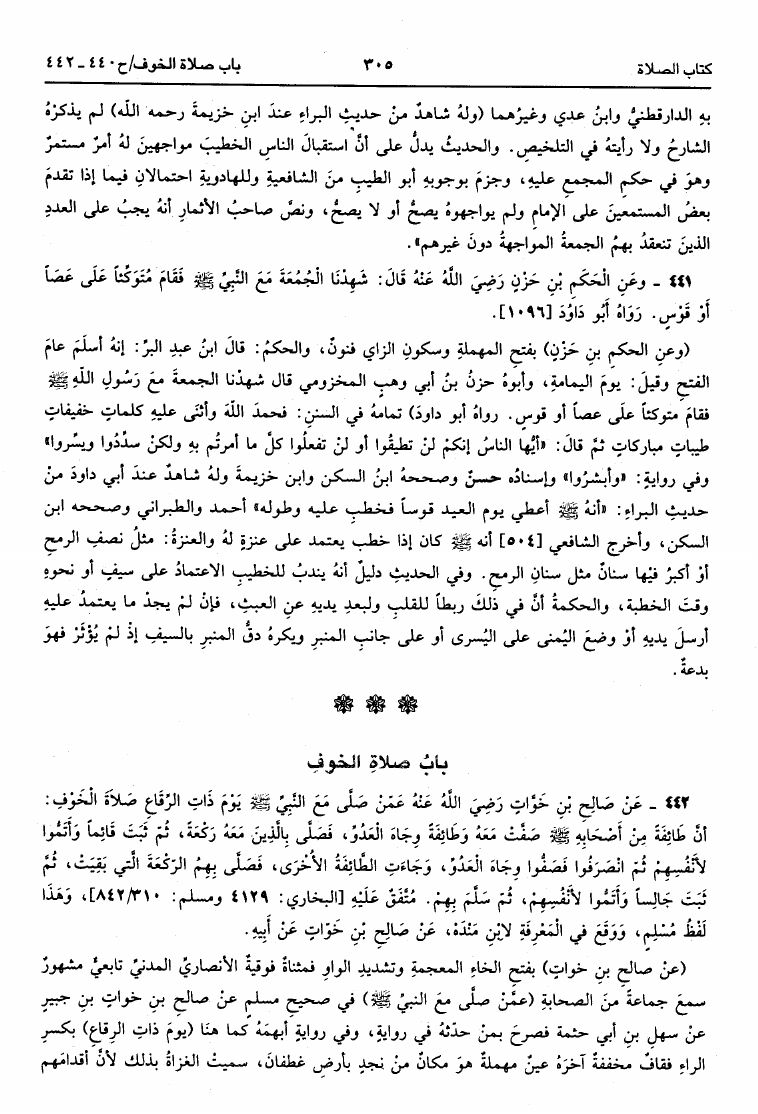 كتاب الصلاة
٣٠٥
باب صلاة الخوف/ح٤٤٠ ـ ٤٤٢
بهِ الدارقطنيُّ وابنُ عدي وغيرُهما (ولهُ شاهدٌ منْ حديثِ البراءِ عندَ ابنِ خزيمةَ رحمه اللَّه) لم يذكرْهُ
الشارحُ ولا رأيتهُ في التلخيصِ. والحديثُ يدلُّ على أنَّ استقبالَ الناسِ الخطيبَ مواجهينَ لهُ أمرٌ مستمرٌ
وهوَ في حكمِ المجمعِ عليهِ، وجزمَ بوجوبهِ أبو الطيبِ منَ الشافعيةِ وللهادويةِ احتمالانِ فيما إذا تقدمَ
بعضُ المستمعينَ على الإمامِ ولم يواجهوهُ يصحُّ أو لا يصحُّ، ونصَّ صاحبُ الأثمارِ أنهُ يجبُ على العددِ
الذينَ تنعقدُ بهمُ الجمعةُ المواجهةُ دونَ غيرهم».
٤٤١ ـ وعَنِ الْحَكَمِ بْنِ حَزْنٍ رَضِيَ اللَّهُ عَنْهُ قَالَ: شَهِدْنَا الْجُمُعَةَ مَعَ النَّبِيِّ ﷺ فَقَامَ مُتَوَكِّئاً عَلَى عَصَاً
أَوْ قَوْسٍ. رَوَاهُ أَبُو دَاوُدَ [١٠٩٦].
(وعنِ الحكمِ بنِ حَزْنٍ) بفتحِ المهملةِ وسكونِ الزاي فنونٌ، والحكمُ: قالَ ابنُ عبدِ البرِّ: إنهُ أسلَمَ عامَ
الفتحِ وقيلَ: يومَ اليمامةِ، وأبوهُ حزنُ بنُ أبي وهبٍ المخزومي قال شهدْنا الجمعةَ معَ رَسُولِ اللَّهِ ﷺ
فقامَ متوكئاً علَى عصاً أو قوسٍ. رواهُ أبو داودَ) تمامُهُ في السننِ: فحمدَ اللَّهَ وأثنَى عليهِ كلماتٍ خفيفاتٍ
طيباتٍ مباركاتٍ ثمَّ قالَ: «أيُّها الناسُ إنكمْ لنْ تطيقُوا أو لنْ تفعلُوا كلَّ ما أمرتُم بهِ ولكنْ سدِّدُوا ويسِّروا»
وفي روايةٍ: «وأبشرُوا» وإسنادُه حسنٌ وصححهُ ابنُ السكن وابن خزيمةَ ولهُ شاهدٌ عندَ أبي داودَ منْ
حديثِ البراءِ: «أنهُ ﷺ أعطي يوم العيد قوساً فخطب عليه وطوله» أحمد والطبراني وصححه ابن
السكن، وأخرج الشافعي [٥٠٤] أنه ﷺ كان إذا خطب يعتمد على عنزةٍ لهُ والعنزةُ: مثلُ نصفِ الرمحِ
أوْ أكبرُ فيْها سنانٌ مثل سنانِ الرمحِ. وفي الحديثِ دليلٌ أنهُ يندبُ للخطيبِ الاعتمادُ على سيفٍ أو نحوِهِ
وقتَ الخطبة، والحكمةُ أنَّ في ذلكَ ربطاً للقلبِ ولبعدِ يديهِ عنِ العبثِ، فإنْ لمْ يجدْ ما يعتمدُ عليهِ
أرسلَ يديهِ أوْ وضعَ اليُمنى على اليُسرى أو على جانبِ المنبرِ ويكرهُ دقُّ المنبرِ بالسيفِ إذْ لمْ يُؤْثَرْ فهوَ
بدعةٌ.
بابُ صلاةِ الخوفِ
٤٤٢ ـ عَنْ صَالِحِ بْنِ خَوَّاتٍ رَضِيَ اللَّهُ عَنْهُ عَمَّنْ صَلَّى مَعَ النَّبِيِّ ﷺ يَوْمَ ذَاتِ الرِّقَاعِ صَلاَةَ الْخَوْفِ:
أنَّ طَائِفَةً مِنْ أَصْحَابِهِ ﷺ صَفَّتْ مَعَهُ وَطَائِفَةً وِجَاهَ الْعَدُوِّ، فَصَلَّى بِالَّذِينَ مَعَهُ رَكْعَةً، ثُمَّ ثَبَتَ قَائِماً وَأَتَمُّوا
لأَنْفُسِهِمْ ثُمَّ انْصَرَفُوا فَصَفُّوا وِجَاهَ الْعَدُوِّ، وَجَاءَتِ الطَّائِفَةُ الأُخْرَى، فَصَلَّى بِهِمُ الرَّكْعَةَ الَّتي بَقِيَتْ، ثُمَّ
ثَبَتَ جَالِساً وَأَتَمُّوا لأَنْفُسِهِمْ، ثُمَّ سَلَّمَ بِهِمْ. مُتَّفَقٌ عَلَيْهِ [البخاري: ٤١٢٩ ومسلم: ٨٤٢/٣١٠]، وَهَذَا
لَفْظُ مُسْلِمٍ، وَوَقَعَ في الْمَعْرِفَةِ لابْنِ مَنْدَهْ، عَنْ صَالِحِ بْنِ خَوّاتٍ عَنْ أَبِيهِ.
(عنْ صالحِ بنِ خواتٍ) بفتحِ الخاءِ المعجمةِ وتشديدِ الواوِ فمثناةٌ فوقيةٌ الأنصاريِّ المدنيِّ تابعيٌّ مشهورٌ
سمعَ جماعةً منَ الصحابةِ (عمَّنْ صلَّى معَ النبيِّ ﷺ) في صحيحِ مسلمٍ عنْ صالحِ بنِ خواتٍ بنِ جبيرٍ
عنْ سهلِ بنِ أبي حثمة فصرحَ بمنْ حدّثهُ في روايةٍ، وفي روايةٍ أبهمَهُ كما هنَا (يومَ ذاتِ الرِقاعِ) بكسرِ
الراءِ فقافٌ مخففةٌ آخرَهُ عينٌ مهملةٌ هوَ مكانٌ منْ نجدٍ بأرضِ غطفانَ، سميتْ الغزاةُ بذلكَ لأنَّ أقدامَهم